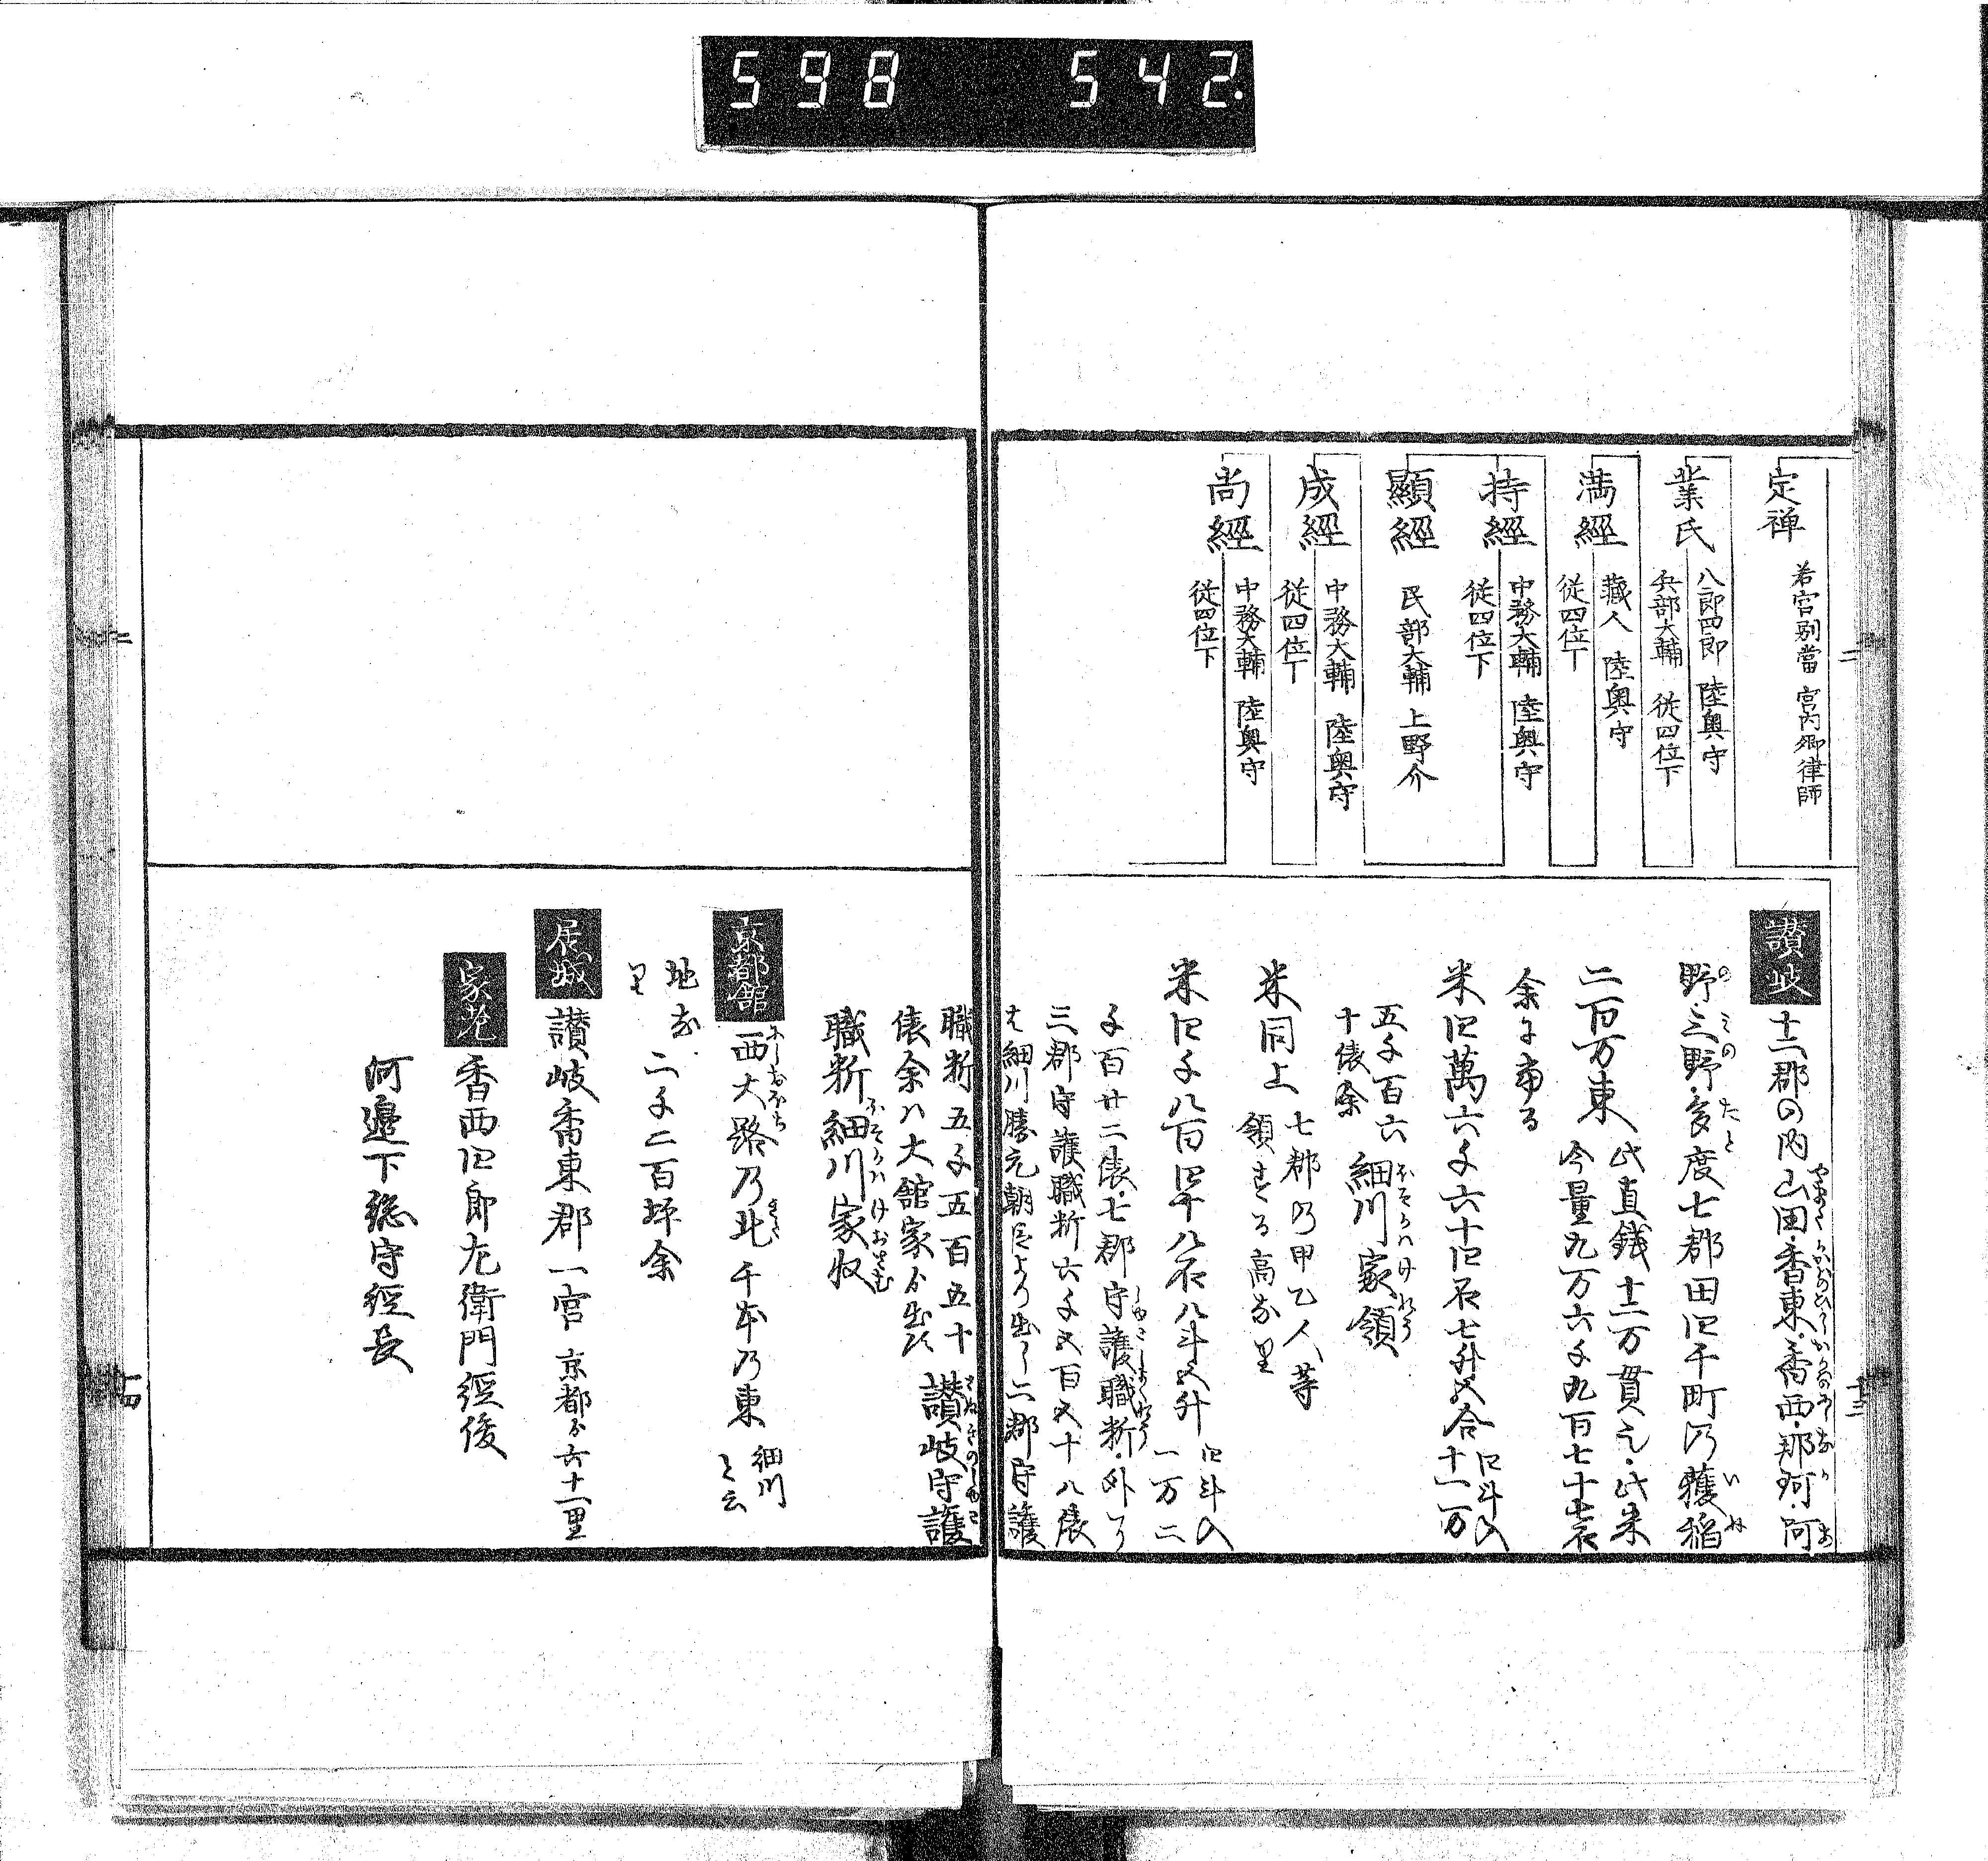 598 542.
定禅 若宮別當 宮内卿律師
業氏 八郎四郎 陸奥守
兵部大輔 従四位下
満經 蔵人 陸奥守
従四位下
持經 中務大輔 陸奥守
従四位下
顯經 民部大輔 上野介
成經 中務大輔 陸奥守
従四位下
尚經 中務大輔 陸奥守
従四位下
讃岐 十二郡の内山田・香東・香西・那珂・阿
野・三野・多度七郡田四千町乃獲稲
二百万束 此直銭十二万貫之・此米
今量九万六千九百七十七石
余に當る
米四萬六千六十四石七升五合 四斗入
十一万
五千百六
十俵余 細川家領
米同上 七郡乃甲乙人等
領する高なり
米四千八百四十八石八斗五升 四斗入
一万二
千百廿二俵・七郡守護職料・外に
三郡守護職料六千五百五十八俵
は細川勝元朝臣より出し二郡守護
職料五千五百五十
俵余ハ大舘家より出
讃岐守護
職料細川家収
京都舘 西大路乃北千本乃東 細川
と云
地
二千二百坪余
居城 讃岐香東郡一宮 京都より六十一里
家老 香西四郎左衛門經俊
河邉下総守經長
二
十三
二
十四